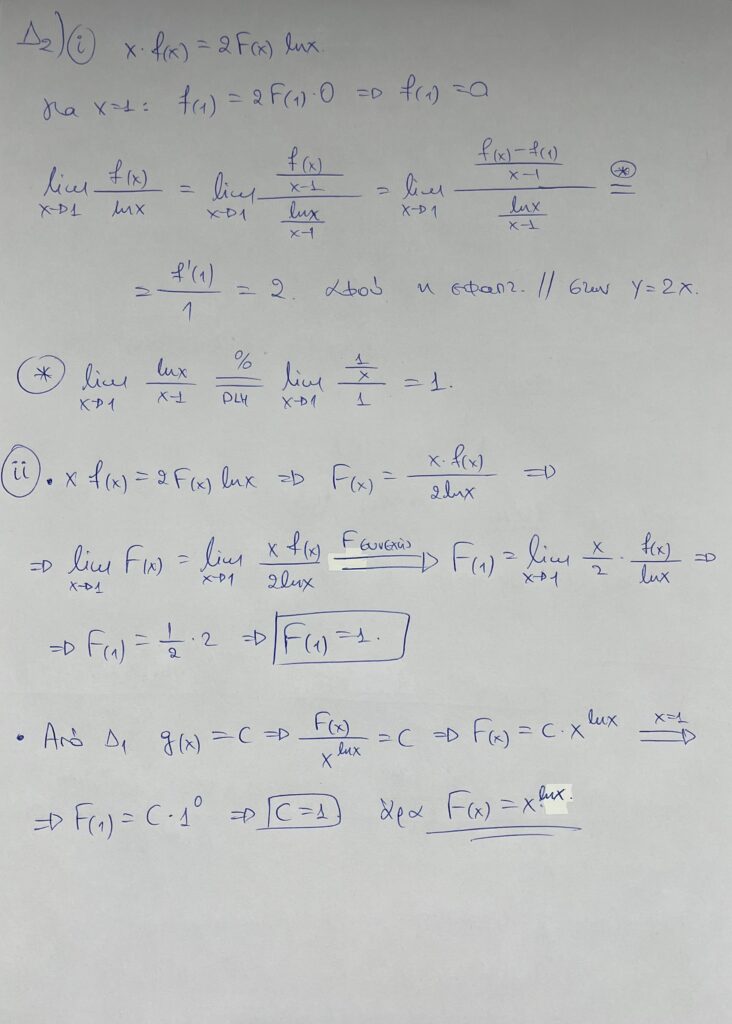 Δ₂) (i) x·f(x) = 2F(x) lnx.
για x=1: f(1) = 2F(1)·0 ⇒ f(1) = 0
lim_{x→1} f(x)/lnx = lim_{x→1} (f(x)/(x-1))/(lnx/(x-1)) = lim_{x→1} ((f(x)-f(1))/(x-1))/(lnx/(x-1)) =^{(*)}
= f'(1)/1 = 2. αφού η εφαπτ. // στην y=2x.
(*) lim_{x→1} lnx/(x-1) =^{0/0}_{DLH} lim_{x→1} (1/x)/1 = 1.
(ii) • x f(x) = 2F(x) lnx ⇒ F(x) = x·f(x)/(2lnx) ⇒
⇒ lim_{x→1} F(x) = lim_{x→1} x f(x)/(2lnx) ⇒^{F συνεχής} F(1) = lim_{x→1} x/2 · f(x)/lnx ⇒
⇒ F(1) = 1/2 · 2 ⇒ F(1) = 1.
• Από Δ₁ g(x) = C ⇒ F(x)/x^{lnx} = C ⇒ F(x) = C·x^{lnx} ⇒^{x=1}
⇒ F(1) = C·1⁰ ⇒ C = 1 άρα F(x) = x^{lnx}.